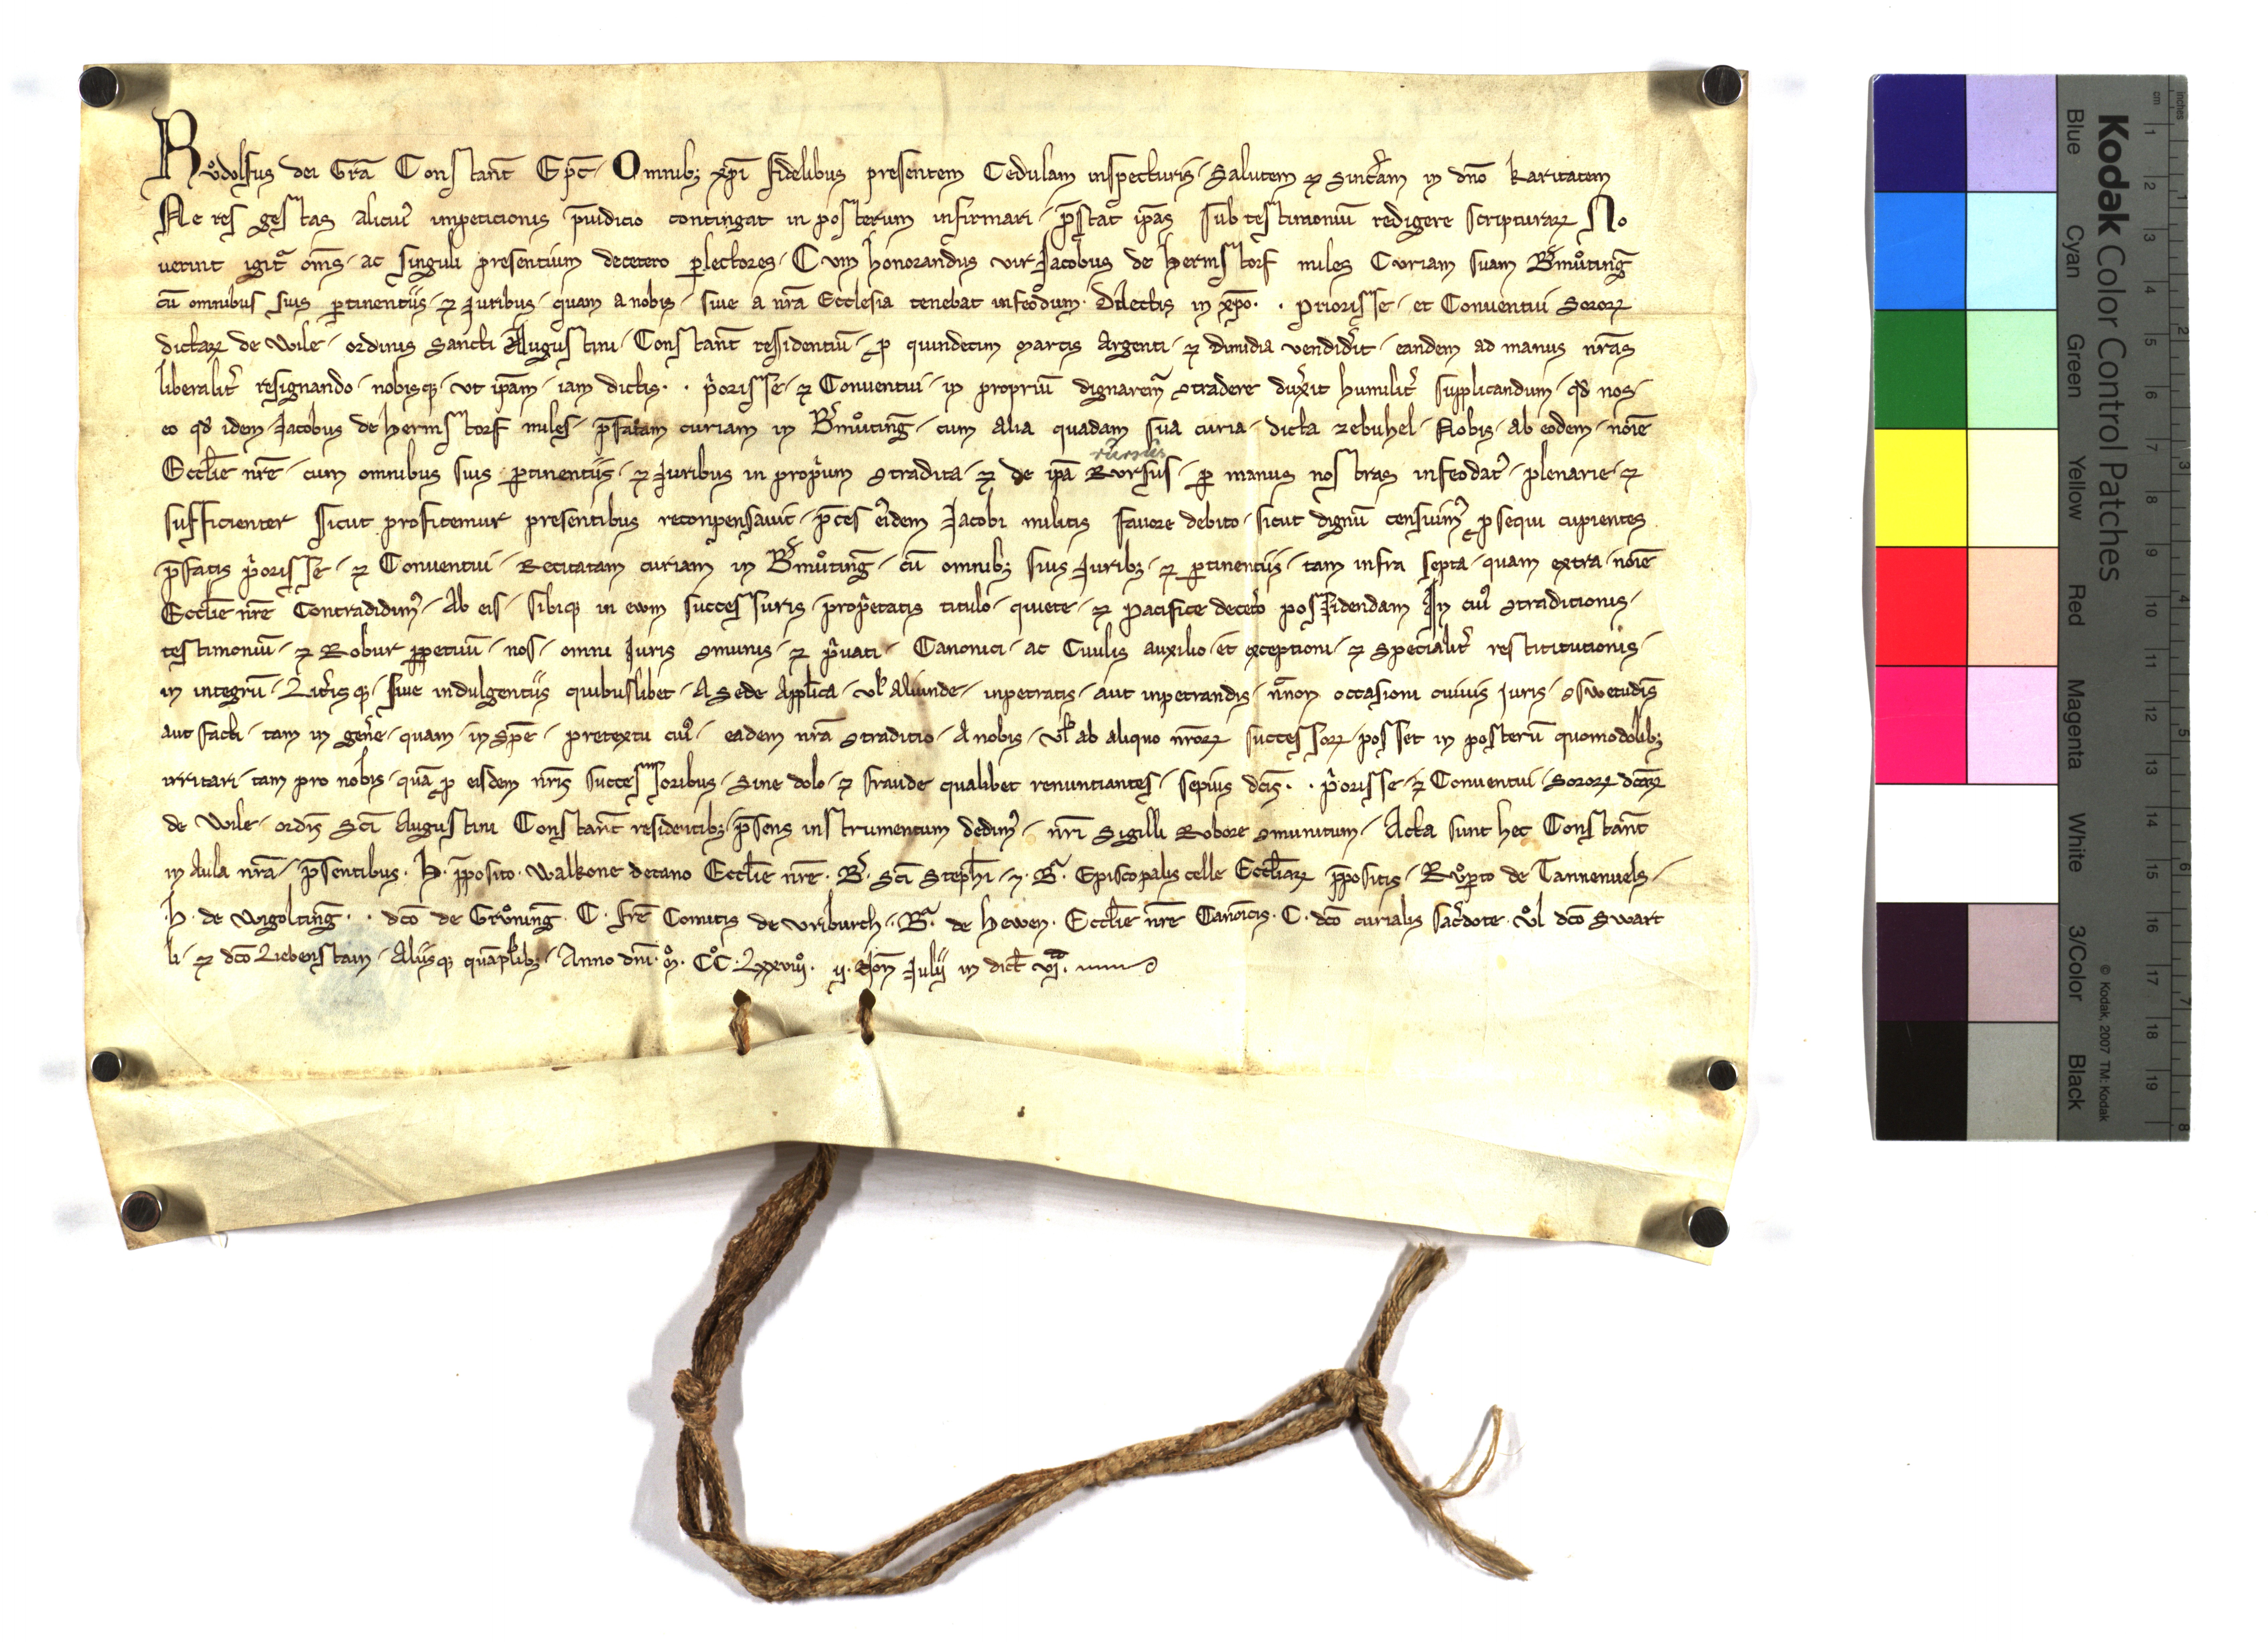 Růdolfus dei Gr̄a Constant̄ Ep̄c. Omnibꝫ xp̄i fidelibus presentem Cedulam inspecturis. Salutem ⁊ sinc̄am in dn̄o karitatem
Ne res gestas alicuiꝰ inpeticionis p̄iudicio contingat in posterum infirmari. p̄stat ip̄as sub testimoniū redigere scripturarꝝ No
uerint igit᷑ om̄s. ac singuli presentium decetero ꝑlectores. Cum honorandus vir Jacobus de Hermstorf miles Curiam suam B̄můting̅
cū omnibus suis ꝑtinentiis. ⁊ Juribus. quam a nobis. siue a nr̄a Ecclesia tenebat infeodum. Dilectis in xp̄o. . priorisse. et Conuentui Sororꝝ
dictarꝝ de Wile. ordinis Sancti Augustini. Constant̄ residentiū. ꝓ quindecim Marcis Argenti. ⁊ dimidia vendidit. eandem ad manus nr̄as
liberalit̉ resignando. nobisqꝫ. vt ip̄am. iam dictis. . p̉orisse. ⁊ Conuentui. in propriū dignarem᷑ ꝯtradere duxit humilit̉ supplicandum. qd̄ nos.
eo qd̄ idem. Jacobus de Hermstorf miles. p̄fatam curiam in B̄můting̅. cum alia quadam sua curia. dicta zebuhel. Nobis. ab eodem. noīe
rursus
Eccl̄ie nr̄e. cum omnibus suis ꝑtinentiis. ⁊ Juribus in prop̉um ꝯtradita. ⁊ de ip̄a Rursus. ꝑ manus nostras infeodat̉. plenarie. ⁊
sufficienter sicut profitemur presentibus reconpensauit. p̄ces eiꝰdem Jacobi militis fauore debito. sicut dignū censuimꝰ ꝓsequi cupientes
p̄fatis p̉orisse. ⁊ Conuentui. Recitatam curiam in B̄můting̅. cū omnibꝫ suis Juribꝫ. ⁊ ꝑtinentiis. tam infra septa. quam extra. noīe
Eccl̄ie nr̄e Contradidimꝰ. Ab eis. sibiqꝫ in ewm successuris. prop̉etatis titulo. quiete. ⁊ Pacifice decet̉o possidendam In cuiꝰ ꝯtraditionis.
testimoniū. ⁊ Robur ꝑpetuū. nos. omni Juris ꝯmunis. ⁊ p̉uati. Canonici. ac Ciuilis auxilio. et exceptioni. ⁊ Specialit̉ restititutionis.
in integrū. Litt̉isqꝫ. siue indulgentiis quibuslibet. A Sede Appl̄ica. vl̄ Aliunde. inpetratis. aut inpetrandis. nc̄non occasioni cuiuis Juris. ꝯswetudīs
aut facti. tam in gen̉e. quam. in Sp̄e. pretextu cuiꝰ. eadem nr̄a ꝯtraditio. A nobis. vl̄ ab aliquo nr̄orꝝ successorꝝ. posset in posterū quomodolibꝫ
irritari. tam pro nobis. quā ꝓ eisdem nr̄is successoribus. Sine dolo. ⁊ fraude qualibet renuntiantes. sepius dc̄is. . p̉orisse. ⁊ Conuentui. Sororꝝ dc̄arꝝ
de Wile. ordīs Sc̄i Augustini Constant̄ residentibꝫ. p̄sens instrumentum dedimꝰ. nr̄i Sigilli Robore ꝯmunitum. Acta sunt hec Constant̄
in Aula nr̄a. p̄sentibus. H. p̄posito. Walkone decano Eccl̄ie nr̄e. B̉. Sc̄i Steph̄i. ⁊. B̄. Episcopalis celle Eccl̄iarꝝ p̄positis. Růꝑto de Tannenuels.
H. de Wigolting̅. . dc̄o de Grůning̅. C. fr̄e Comitis de vriburch. B̄. de Hewen. Eccl̄ie nr̄e Canonicis. C. dc̄o curialis sac̉dote. vͦl dc̄o Swart
li. ⁊ dc̄o Liebenstain. Aliisqꝫ quāpl̉ibꝫ. Anno dn̄i. mͦ. CͦCͦ. Lxxviiiͦ. ij. Non̄ Julij in dict̄ vjª.
Kodak Color Control Patches
Blue Cyan Green Yellow Red Magenta White 3/Color Black
© Kodak, 2007 TM: Kodak
cm 1 2 3 4 5 6 7 8 9 10 11 12 13 14 15 16 17 18 19
inches 1 2 3 4 5 6 7 8